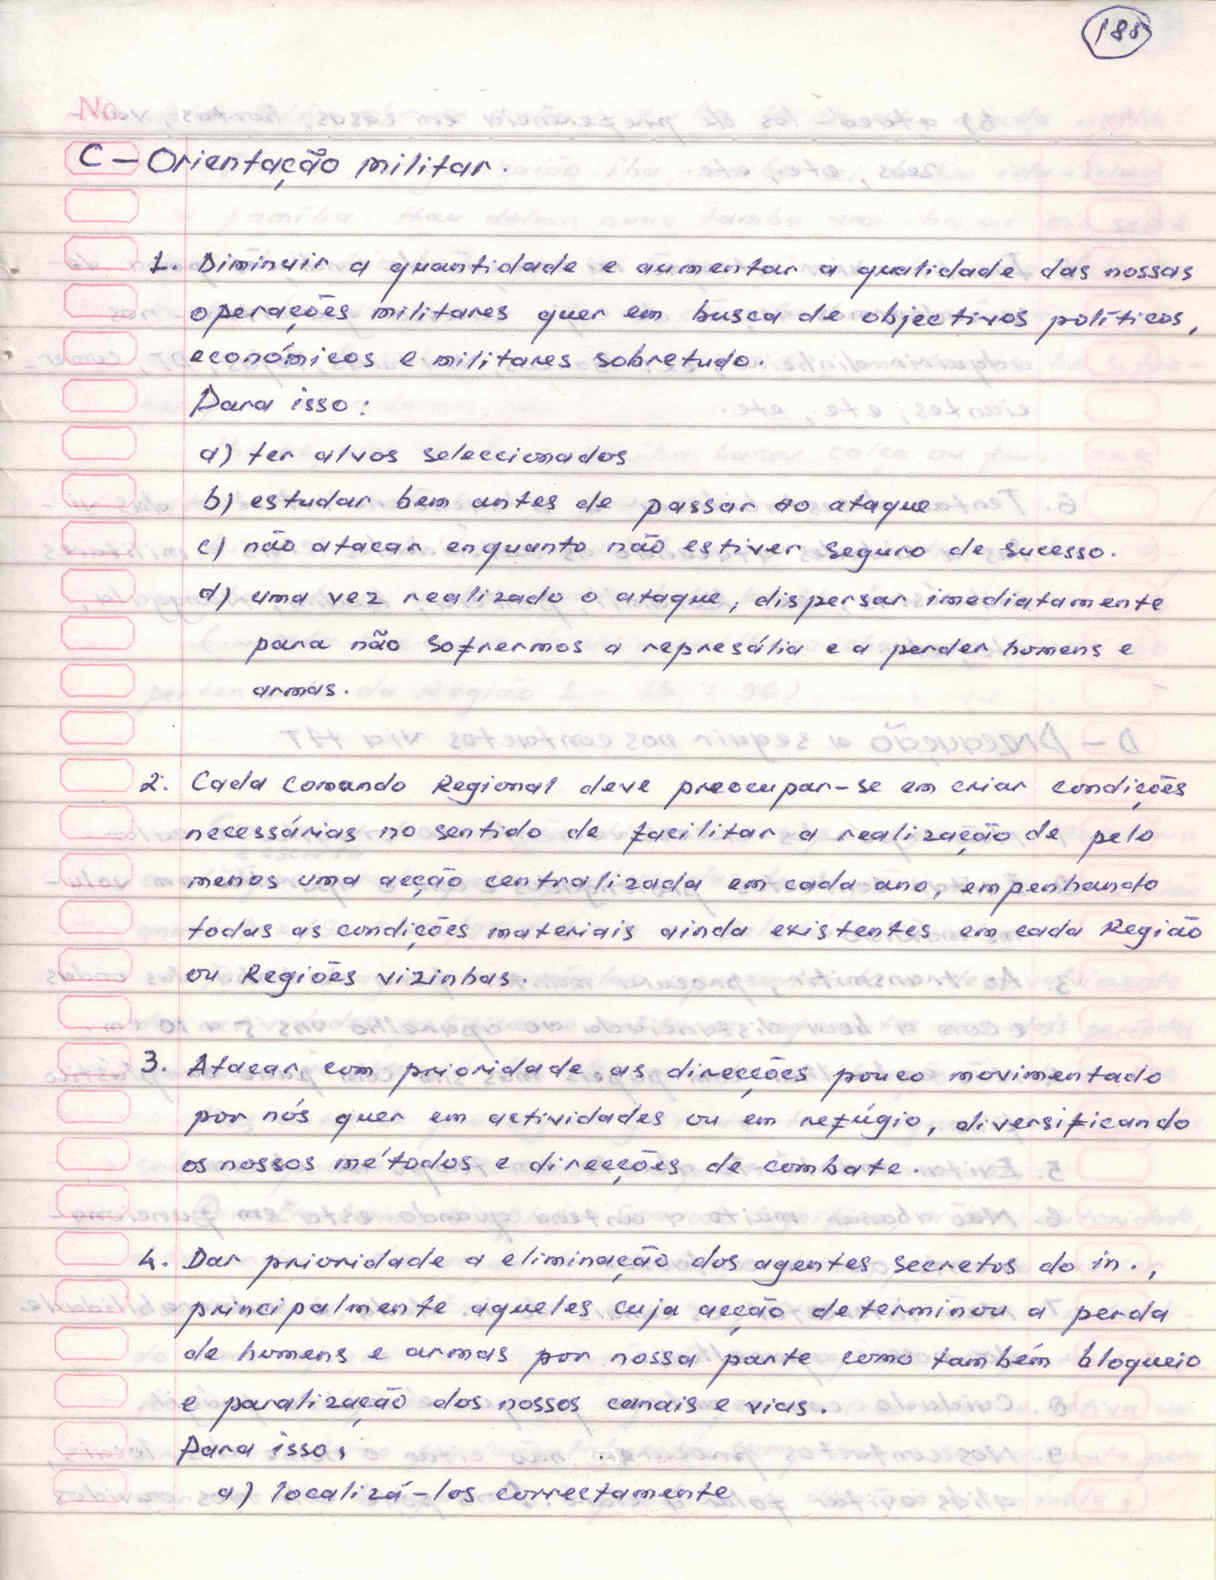 188
C – Orientação militar.
1. Diminuir a quantidade e aumentar a qualidade das nossas
operações militares quer em busca de objectivos políticos,
económicos e militares sobretudo.
Para isso:
a) ter alvos seleccionados
b) estudar bem antes de passar ao ataque
c) não atacar enquanto não estiver seguro de sucesso.
d) uma vez realizado o ataque, dispersar imediatamente
para não sofrermos a represália e a perder homens e
armas.
2. Cada Comando Regional deve preocupar-se em criar condições
necessárias no sentido de facilitar a realização de pelo
menos uma acção centralizada em cada ano, empenhando
todas as condições materiais ainda existentes em cada Região
ou Regiões vizinhas.
3. Atacar com prioridade as direcções pouco movimentado
por nós quer em actividades ou em refúgio, diversificando
os nossos métodos e direcções de combate.
4. Dar prioridade a eliminação dos agentes secretos do in.,
principalmente aqueles cuja acção determinou a perda
de homens e armas por nossa parte como também bloqueio
e paralização dos nossos canais e vias.
Para isso:
a) localizá-los correctamente